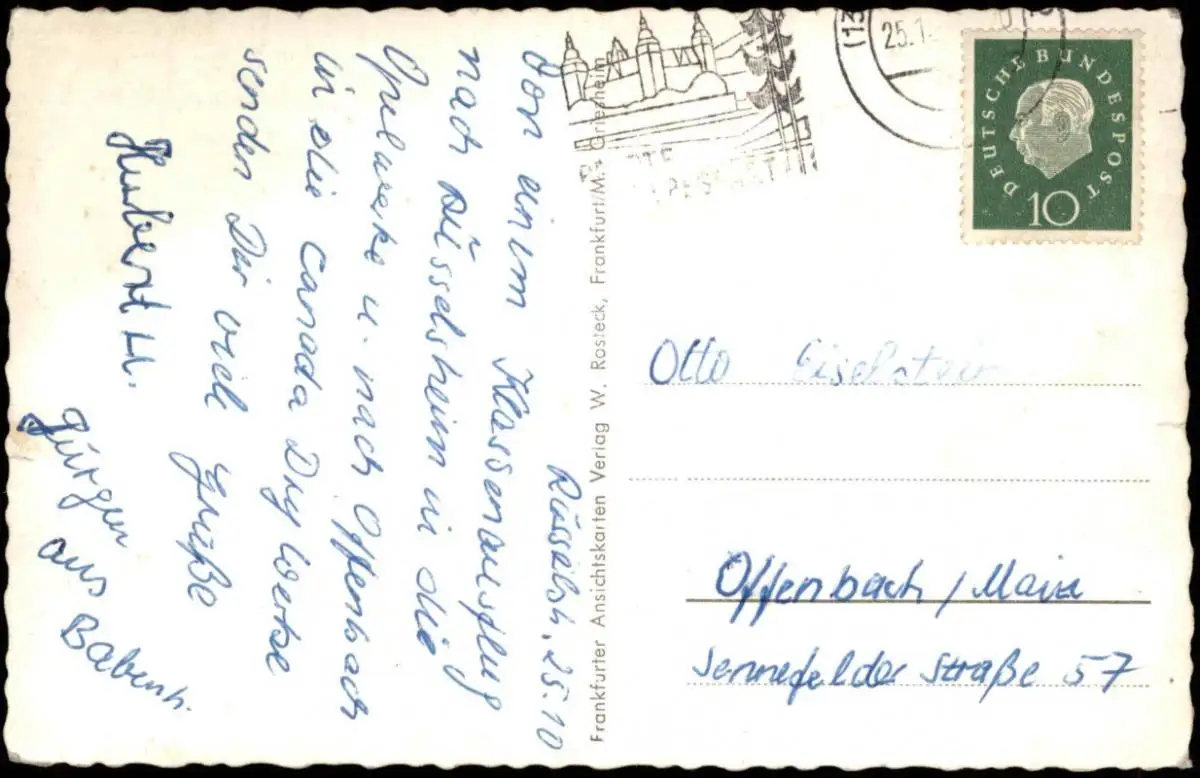 Rüsselsh, 25.10
Von einem Klassenausflug
nach Rüsselsheim in die
Opelwerke u. nach Offenbach
in die Canada Dry Werke
senden Dir viele Grüße
Hubert H.
Jürgen
aus Babenh.
Frankfurter Ansichtskarten Verlag W. Rosteck, Frankfurt/M.-Griesheim
(13
25.1
DEUTSCHE BUNDESPOST
10
Otto Eiselstein
Offenbach / Main
Sennefelder Straße 57